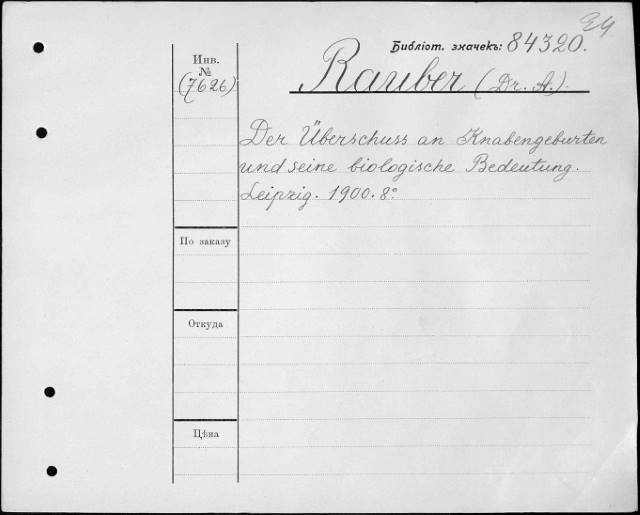 Библіот. значекъ: 84320.
Инв.
№
(7626)
Rauber (Dr. A.).
Der Überschuss an Knabengeburten
und seine biologische Bedeutung.
Leipzig. 1900. 8°.
По заказу
Откуда
Цѣна